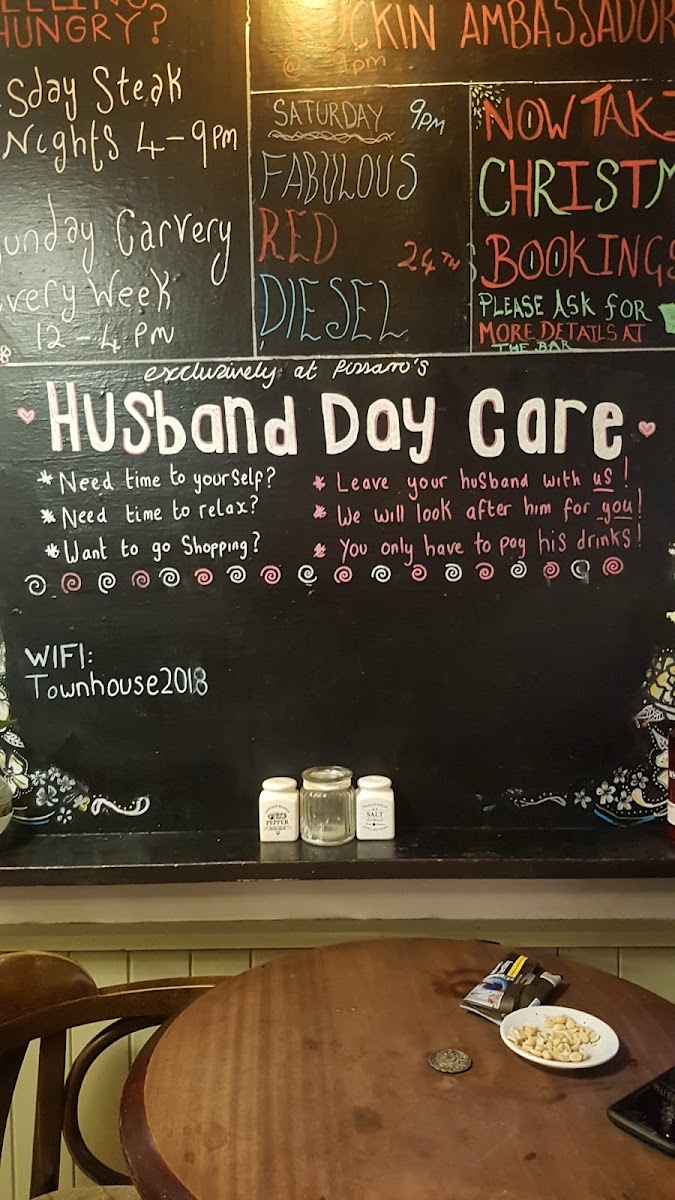 HUNGRY?
sday Steak
Nights 4-9pm
unday Carvery
very Week
12-4 PM
OCKIN AMBASSADOR
@ 9pm
SATURDAY 9PM
FABULOUS
RED 24TH
DIESEL
NOW TAKI
CHRISTM
BOOKINGS
PLEASE ASK FOR
MORE DETAILS AT
THE BAR
exclusively at Pissarro's
Husband Day Care
* Need time to yourself?
* Need time to relax?
* Want to go Shopping?
* Leave your husband with us!
* We will look after him for you!
* You only have to pay his drinks!
WIFI:
Townhouse2018
PEPPER
SALT